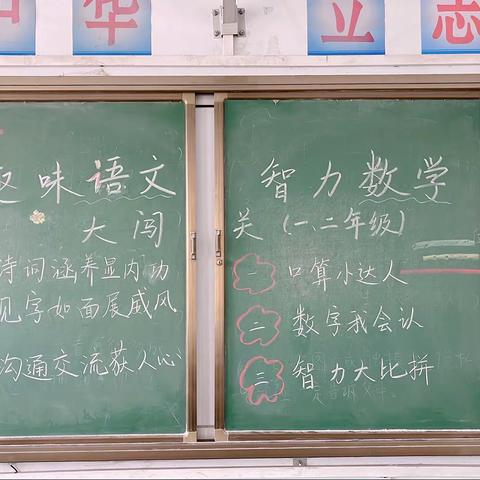 华
立
志
趣味语文
智力数学
大闯
关（一、二年级）
诗词涵养显内功
见字如面展威风
沟通交流获人心
一 口算小达人
二 数字我会认
三 智力大比拼